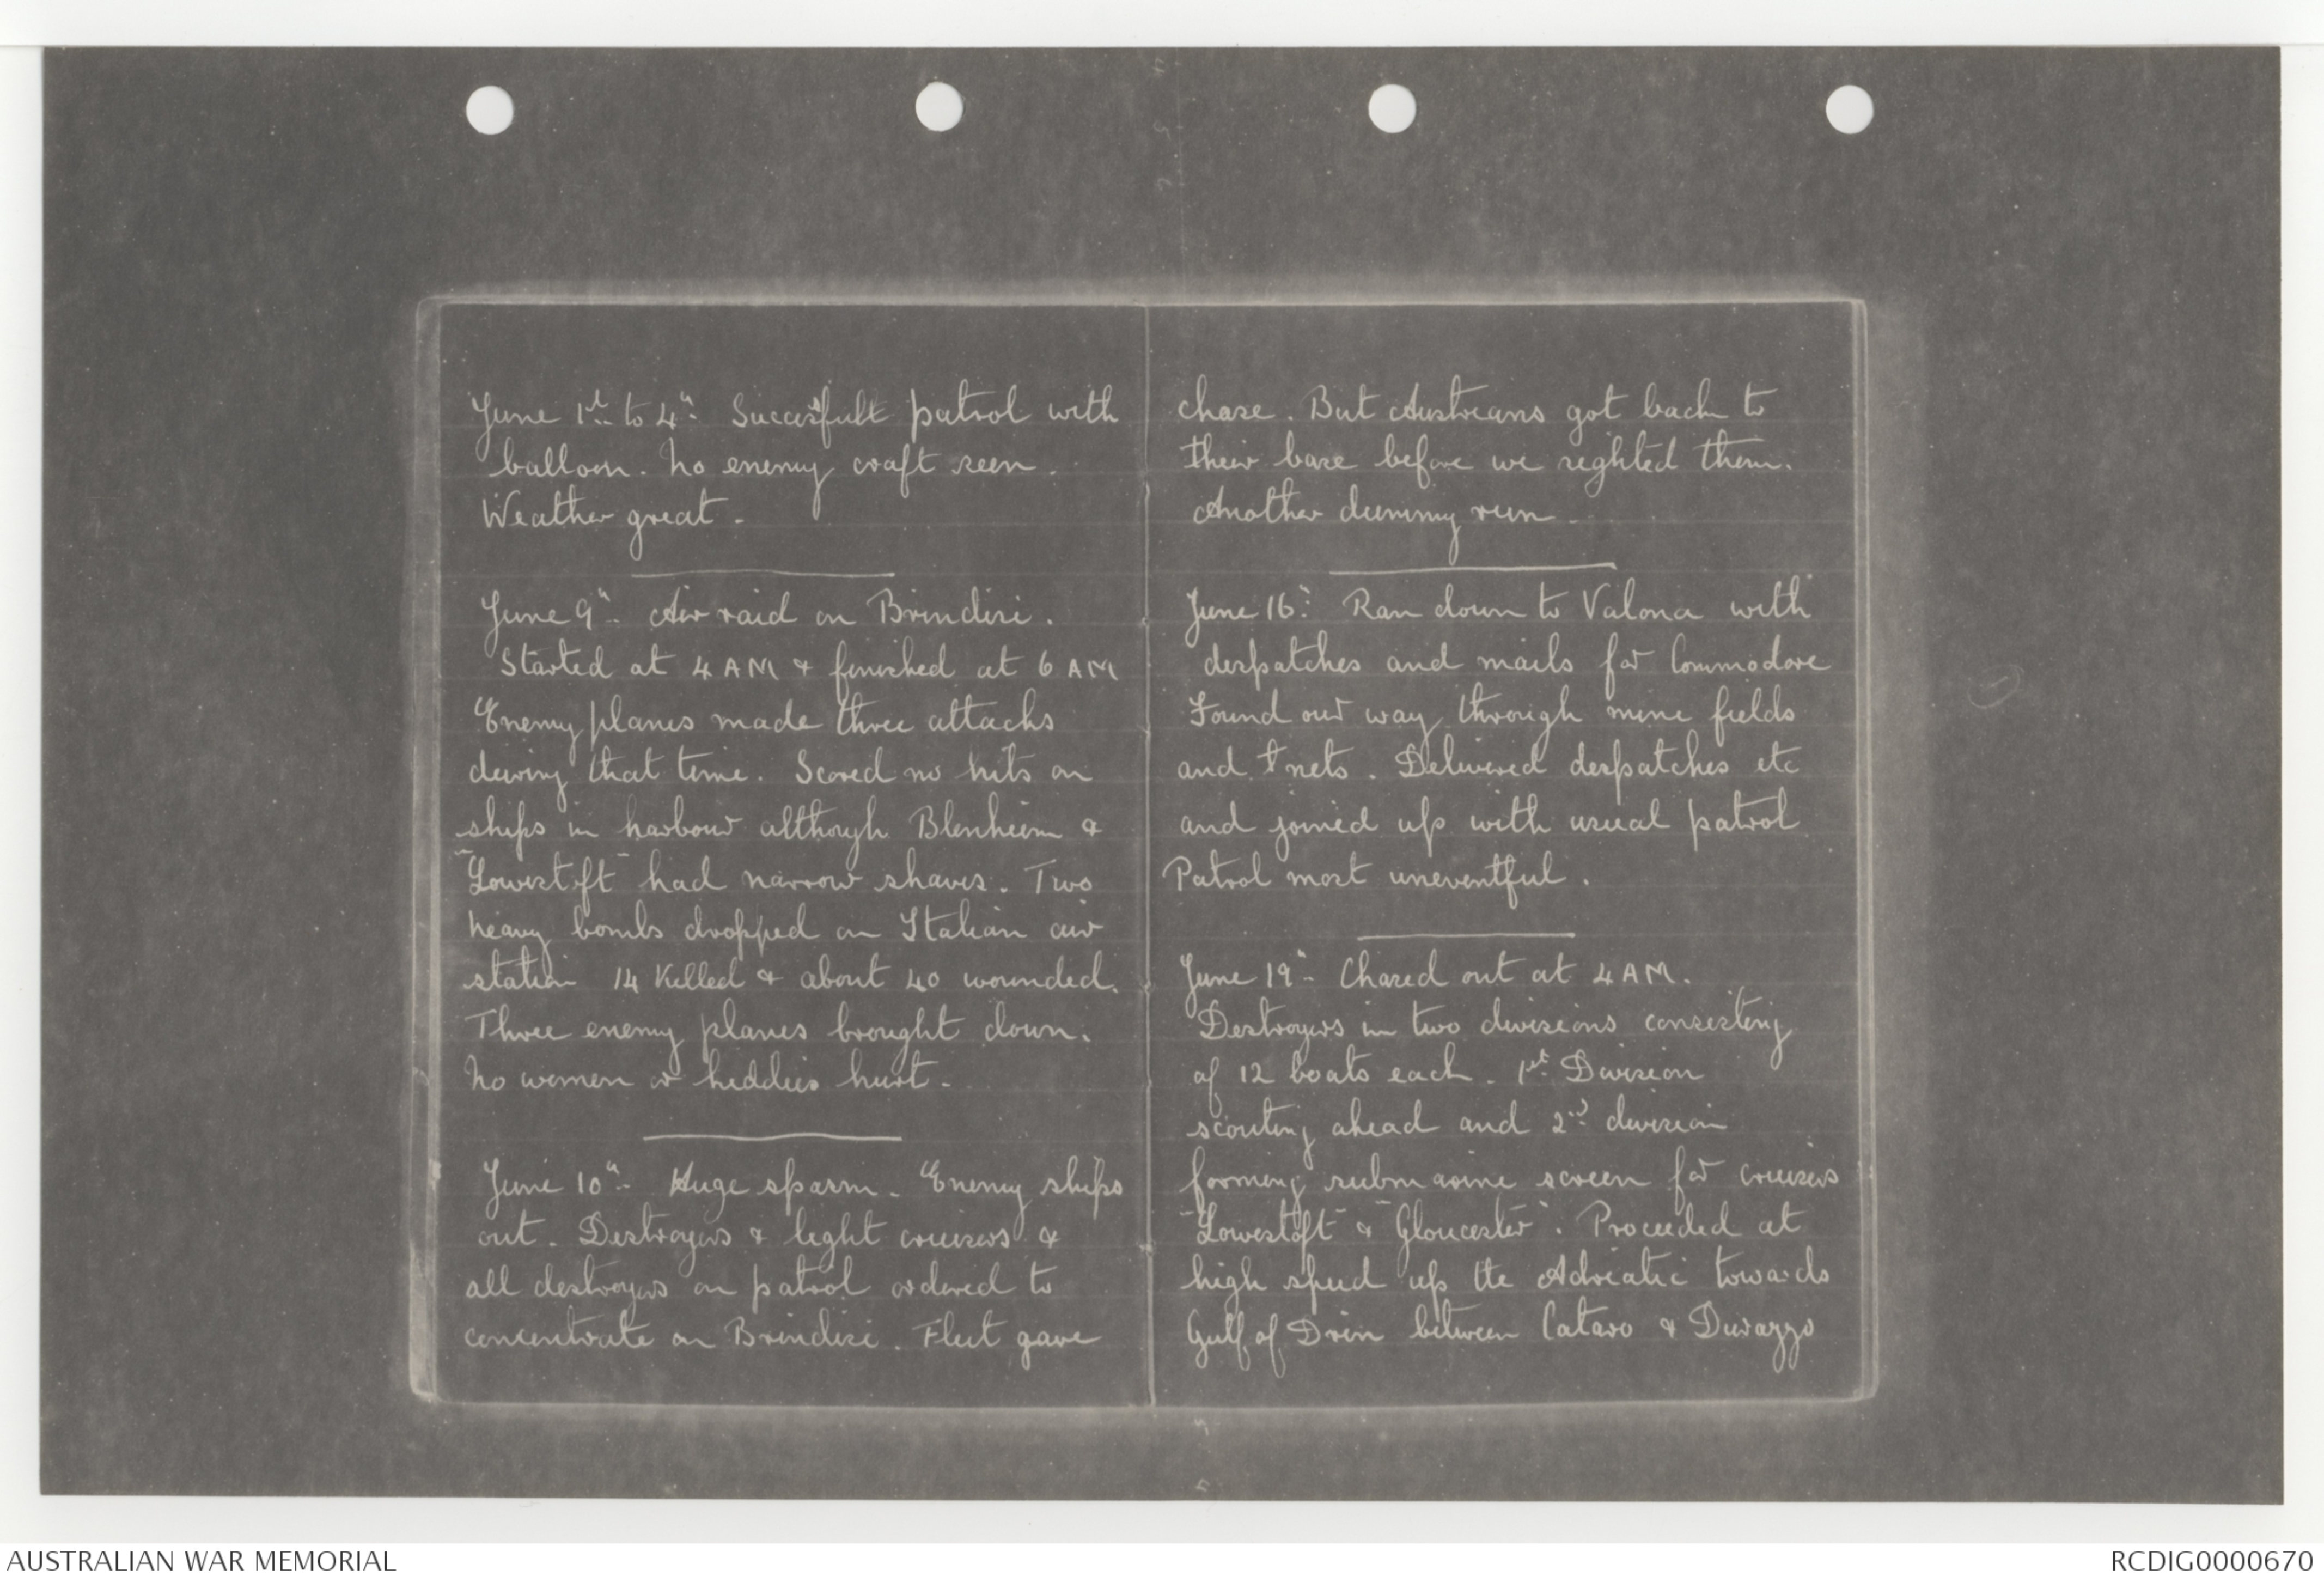 June 1st to 4th Succesfull patrol with
balloon. No enemy craft seen.
Weather great.
June 9th Air raid on Brindisi.
Started at 4 AM & finished at 6 AM
Enemy planes made three attacks
during that time. Scored no hits on
ships in harbour although Blenheim &
"Lowestoft" had narrow shaves. Two
heavy bombs dropped on Italian air
station 14 killed & about 40 wounded.
Three enemy planes brought down.
No women or kiddies hurt.
June 10th Huge spasm. Enemy ships
out. Destroyers & light cruisers &
all destroyers on patrol ordered to
concentrate on Brindisi. Fleet gave
chase. But Austrians got back to
their base before we sighted them.
Another dummy run.
June 16th Ran down to Valona with
despatches and mails for Commodore
Found our way through mine fields
and nets. Delivered despatches etc
and joined up with usual patrol
Patrol most uneventful.
June 19th Chased out at 4 AM.
Destroyers in two divisions consisting
of 12 boats each. 1st Division
scouting ahead and 2nd division
forming submarine screen for cruisers
"Lowestoft" & "Gloucester". Proceeded at
high speed up the Adriatic towards
Gulf of Drin between Cataro & Durazzo
AUSTRALIAN WAR MEMORIAL
RCDIG0000670